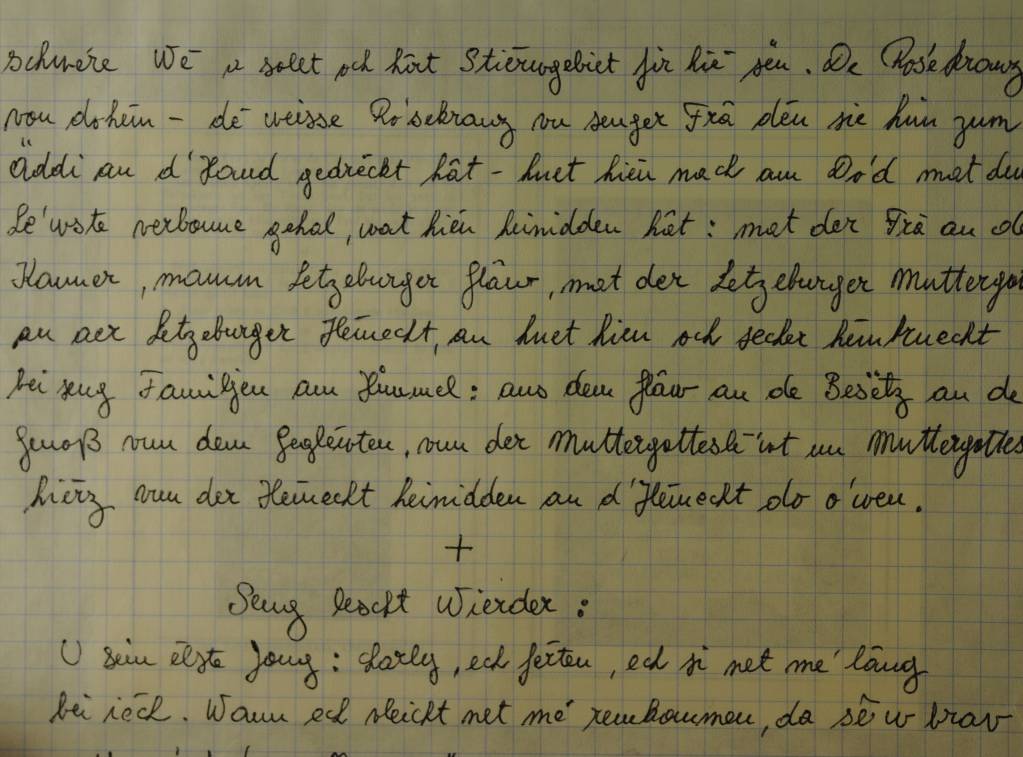 schwére Wé u solst och hirt Stierwgebiet fir hié sën. De Rosékranz
von dohém - dé weisse Ro'sekranz vu senger Frâ dén sie him zum
Äddi an d'Hand gedréckt hât - huet hién nach am Do'd mat dem
Lé'wste verbonne gehal, wat hién heinidden hât: mat der Frâ an de
Kanner, mamm Letzeburger Glâw, mat der Letzeburger Muttergot
an der Letzeburger Hémecht, an huet hien och secher hémbruecht
bei seng Familjen am Himmel: aus dem Glâw an de Besëtz an de
Genoß vun dem Gegléwten, vun der Muttergotteslé'wt um Muttergottes
hierz vun der Hémecht heinidden an d'Hémecht do o'wen.
+
Seng lescht Wierder:
U sein elste Jong: Charly, ech fërten, ech si net mé' lâng
bei iéch. Wann ech vleicht net mé' remkommen, da sê'w brav